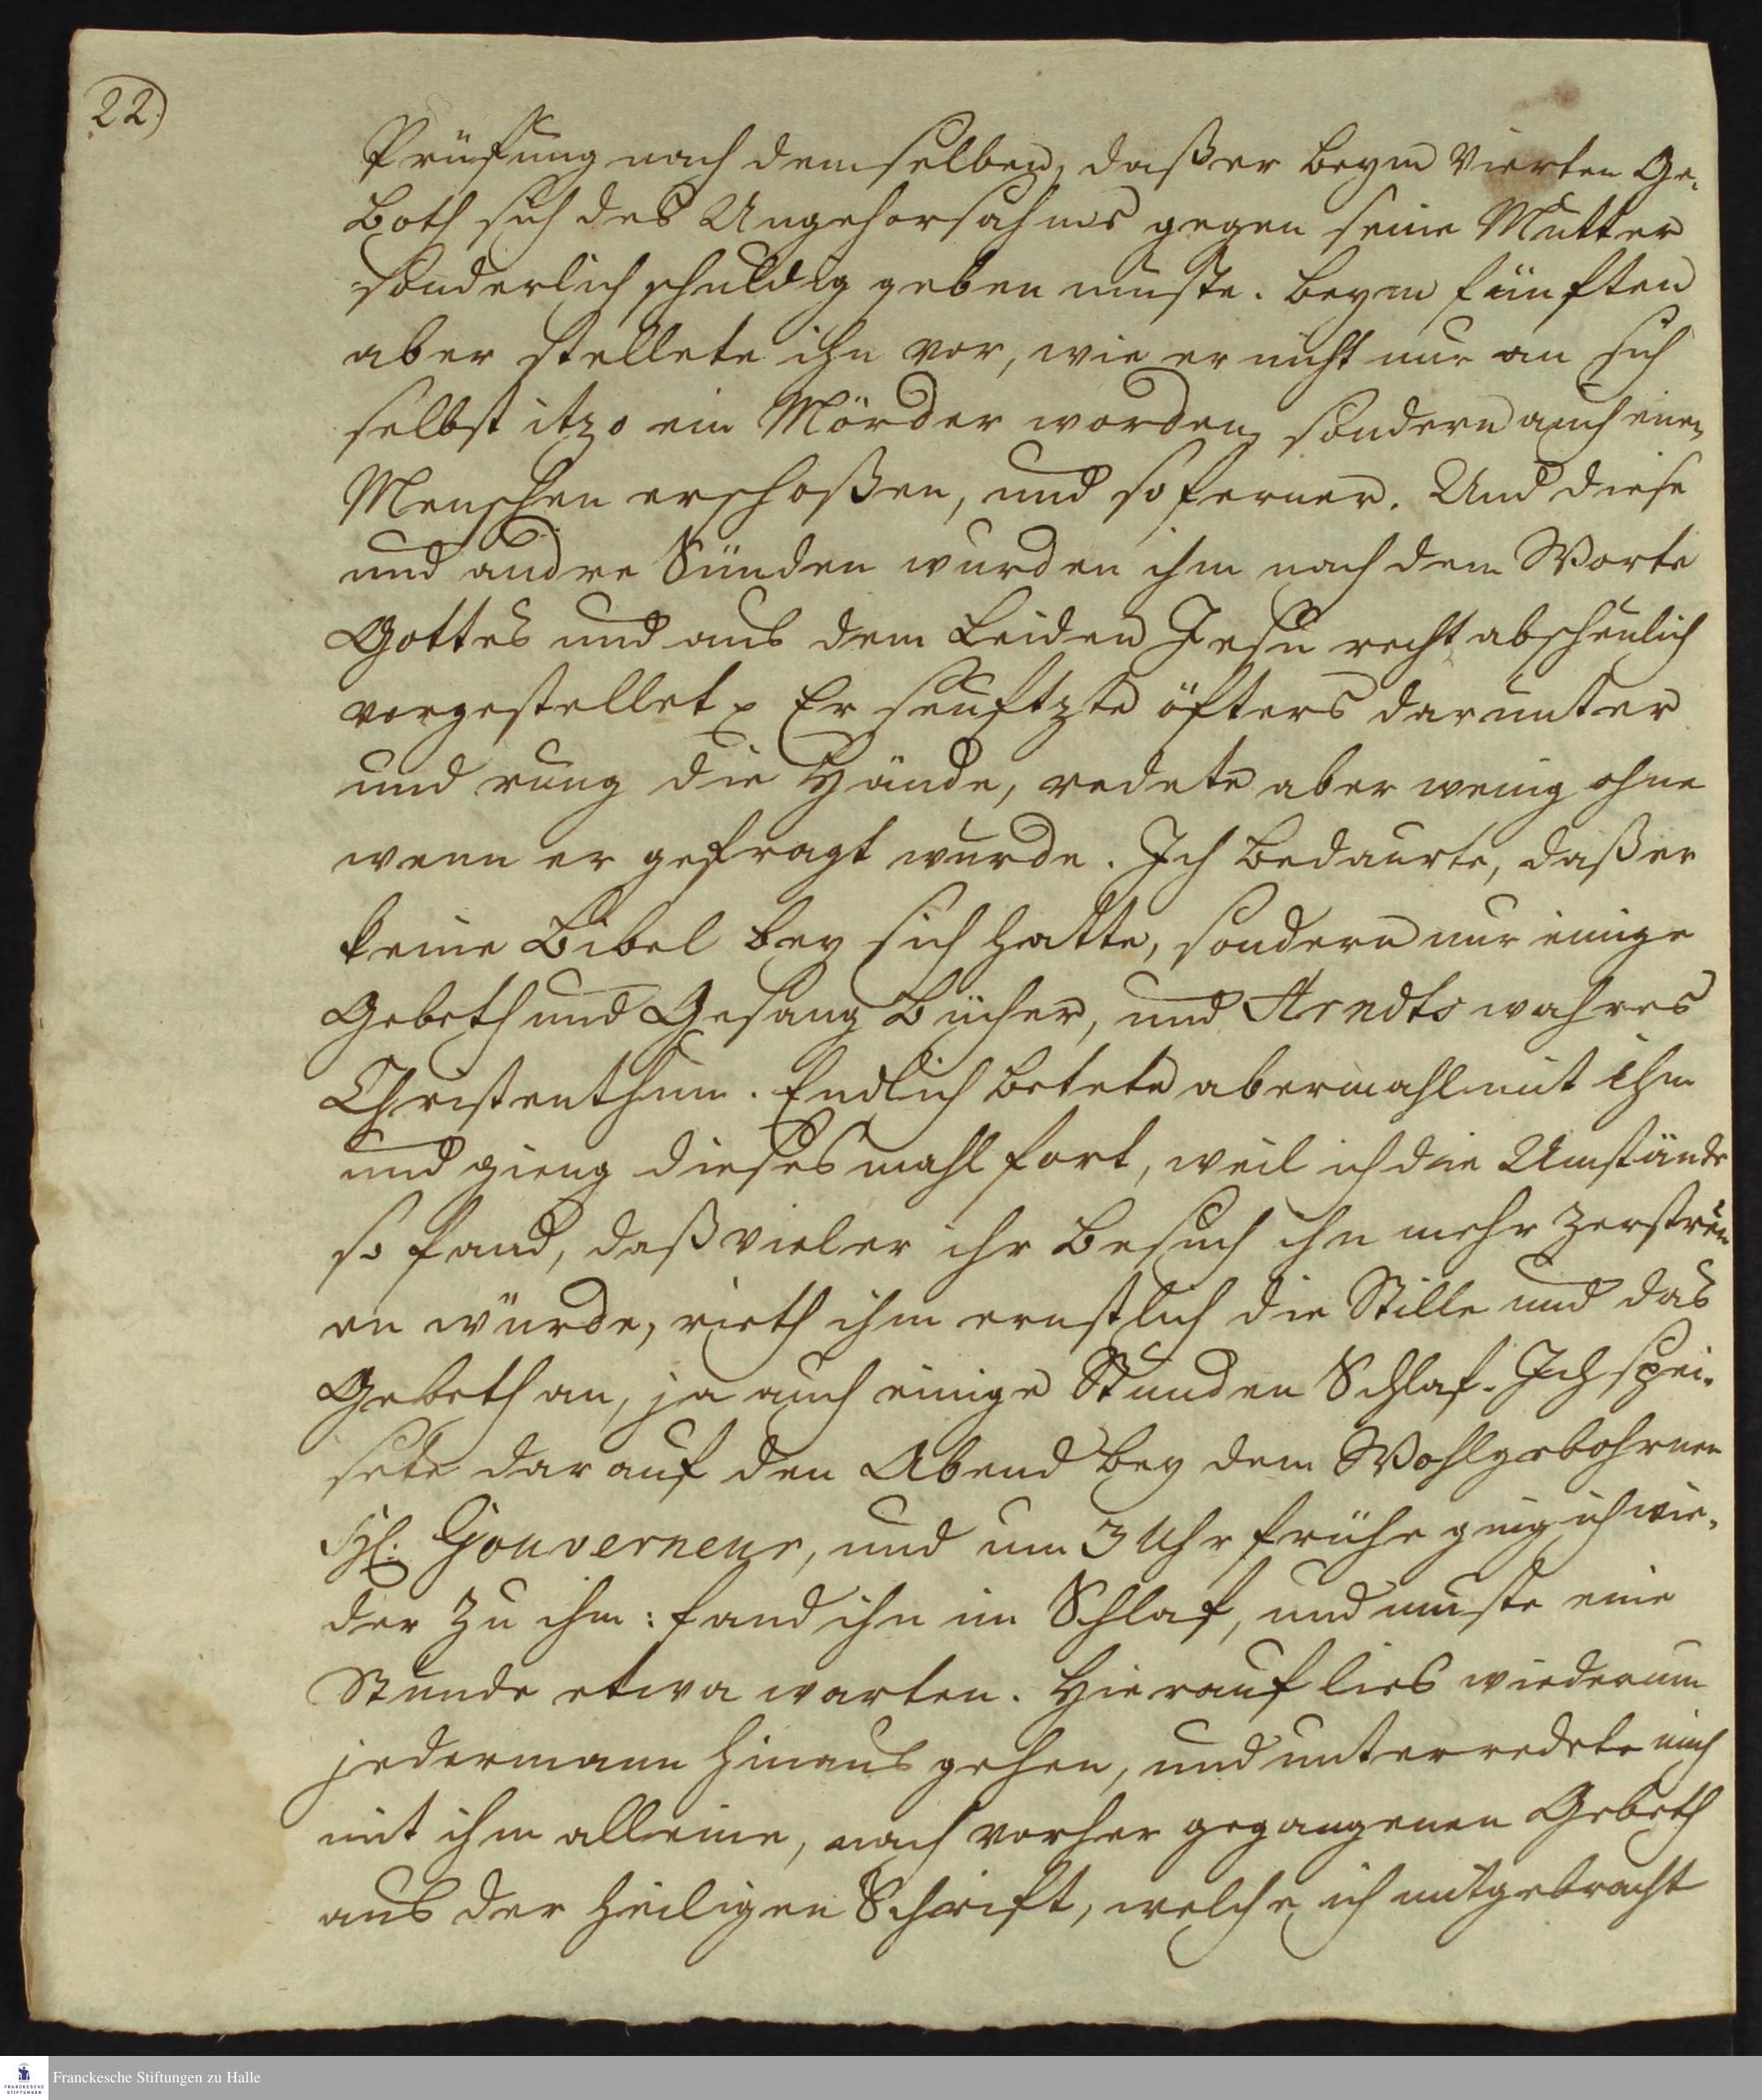 22.)
Prüfung nach demselben, daß er beym Vierten Ge-
both sich des Ungehorsahms gegen seine Mutter
sonderlich schuldig geben muste. beym fünften
aber stellete ihn vor, wie er nicht nur an sich
selbst itzo ein Mörder worden, sondern auch einen
Menschen erschoßen, und so ferner. Und diese
und andre Sünden wurden ihm nach dem Worte
Gottes und aus dem Leiden Jesu recht abscheulich
vorgestellet. Er seuftzte öfters darunter
und rung die Hände, redete aber wenig ohne
wenn er gefragt wurde. Ich bedaurte, daß er
keine Bibel bey sich hatte, sondern nur einige
Gebeth und Gesang Bücher, und Arndts wahres
Christenthum. Endlich betete abermahl mit ihm
und gieng dieses mahl fort, weil ich die Umstände
so fand, daß vieler ihr Besuch ihn mehr zerstreu
en würde, rieth ihm ernstlich die Stille und das
Gebeth an, ja auch einige Stunden Schlaf. Ich spei-
sete darauf den Abend bey dem Wohlgebohrnen
H. Gouverneur, und um 3 Uhr frühe ging ich wie-
der zu ihm: fand ihn im Schlaf, und muste eine
Stunde etwa warten. Hierauf lies wiederum
jedermann hinaus gehen, und unterredete mich
mit ihm alleine, nach vorher gegangenen Gebeth
aus der heiligen Schrift, welche ich mitgebracht
FRANCKESCHE
STIFTUNGEN
Franckesche Stiftungen zu Halle